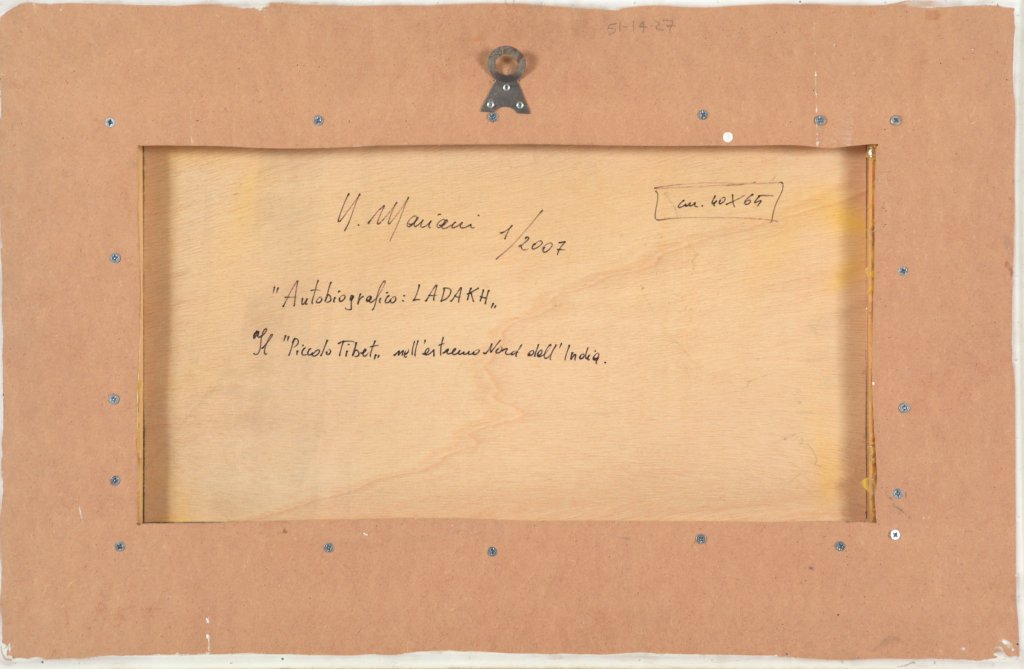 51-14-27
cm. 40X65
U. Mariani 1/2007
"Autobiografico: LADAKH„
Il "Piccolo Tibet„ nell'estremo Nord dell'India.